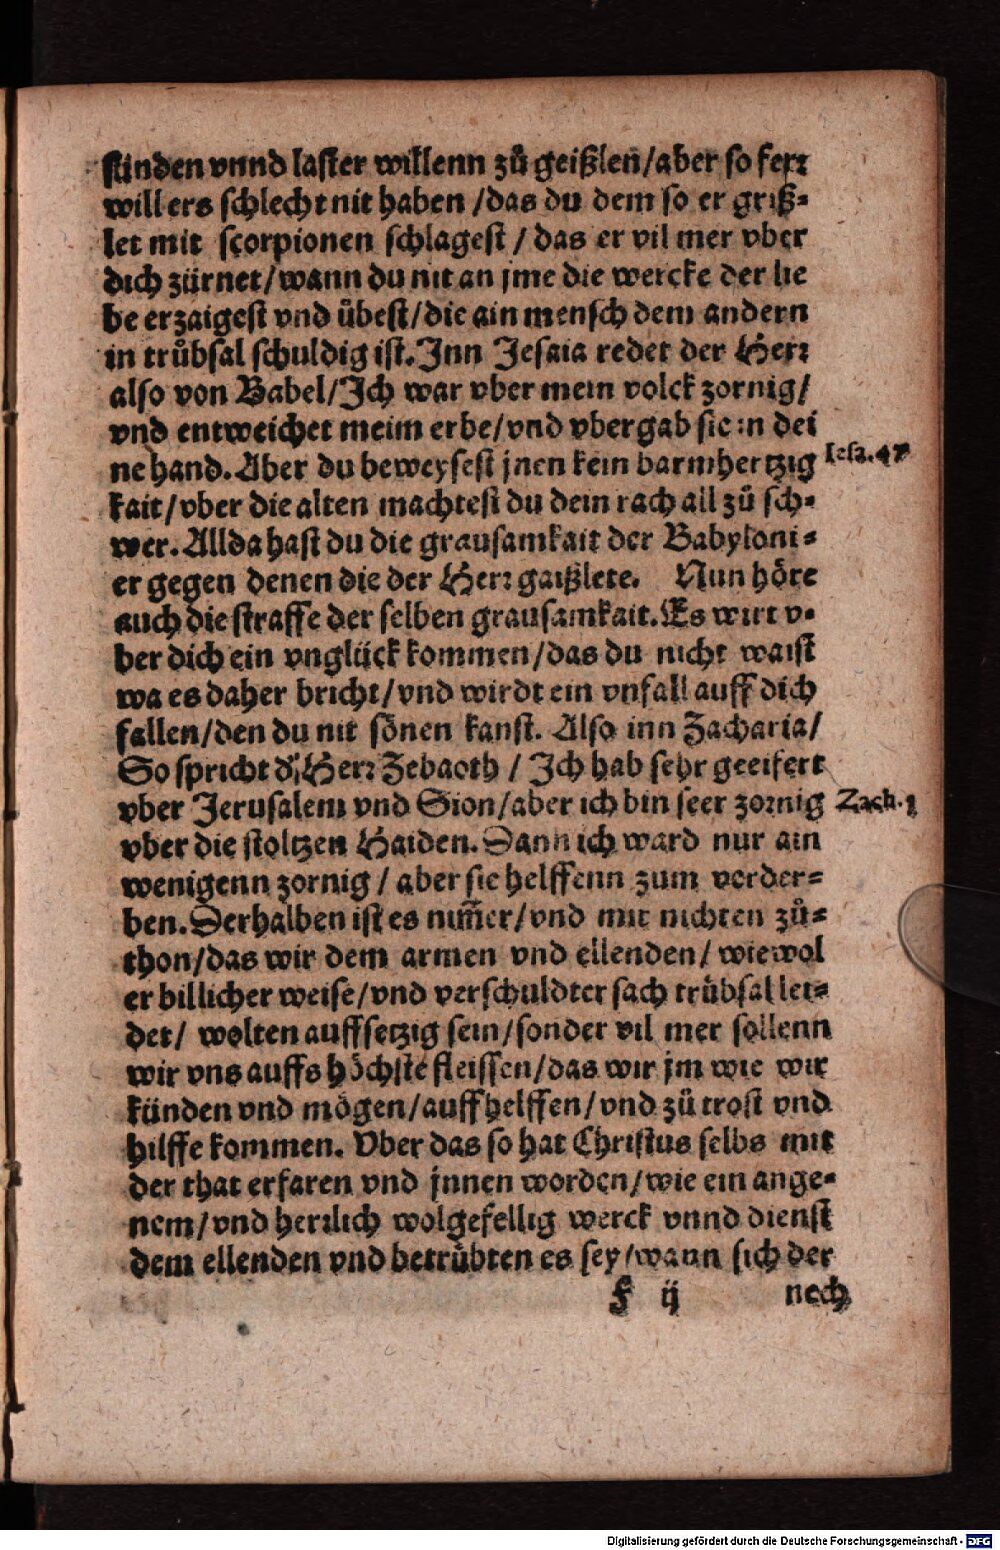 sünden vnnd laster willenn zů geißlen/aber so ferꝛ
will ers schlecht nit haben /das du dem so er griß-
let mit scorpionen schlagest / das er vil mer vber
dich zürnet/wann du nit an jme die wercke der lie
be erzaigest vnd übest/die ain mensch dem andern
in trůbsal schuldig ist. Inn Jesaia redet der Herꝛ
also von Babel/Ich war vber mein volck zornig/
vnd entweichet meim erbe/vnd vbergab sie in dei
ne hand. Aber du beweysest jnen kein barmhertzig
Iesa. 47
kait/vber die alten machtest du dein rach all zů sch-
wer. Allda hast du die grausamkait der Babyloni-
er gegen denen die der Herꝛ gaißlete. Nun höre
auch die straffe der selben grausamkait. Es wirt v-
ber dich ein vnglück kommen/das du nicht waist
wa es daher bricht/vnd wirdt ein vnfall auff dich
fallen/den du nit sönen kanst. Also inn Zacharia/
So spricht d' Herꝛ Zebaoth / Ich hab sehr geeifert
vber Jerusalem vnd Sion/aber ich bin seer zoꝛnig
Zach. j
vber die stoltzen Haiden. Dann ich ward nur ain
wenigenn zornig / aber sie helffenn zum verder-
ben. Derhalben ist es nim̃er/vnd mit nichten zů-
thon/das wir dem armen vnd ellenden/ wiewol
er billicher weise/vnd verschuldter sach trübsal lei-
det/ wolten auffsetzig sein/sonder vil mer sollenn
wir vns auffs höchste fleissen/das wir jm wie wir
künden vnd mögen/auffhelffen/vnd zů trost vnd
hilffe kommen. Vber das so hat Christus selbs mit
der that erfaren vnd jnnen worden/wie ein ange-
nem/vnd herꝛlich wolgefellig werck vnnd dienst
dem ellenden vnd betrůbten es sey/wann sich der
F ij
noch
Digitalisierung gefördert durch die Deutsche Forschungsgemeinschaft - DFG